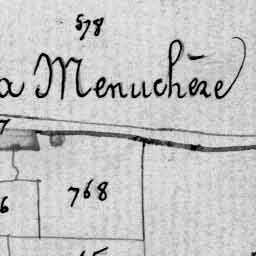 578
a Menuchère
7
768
6